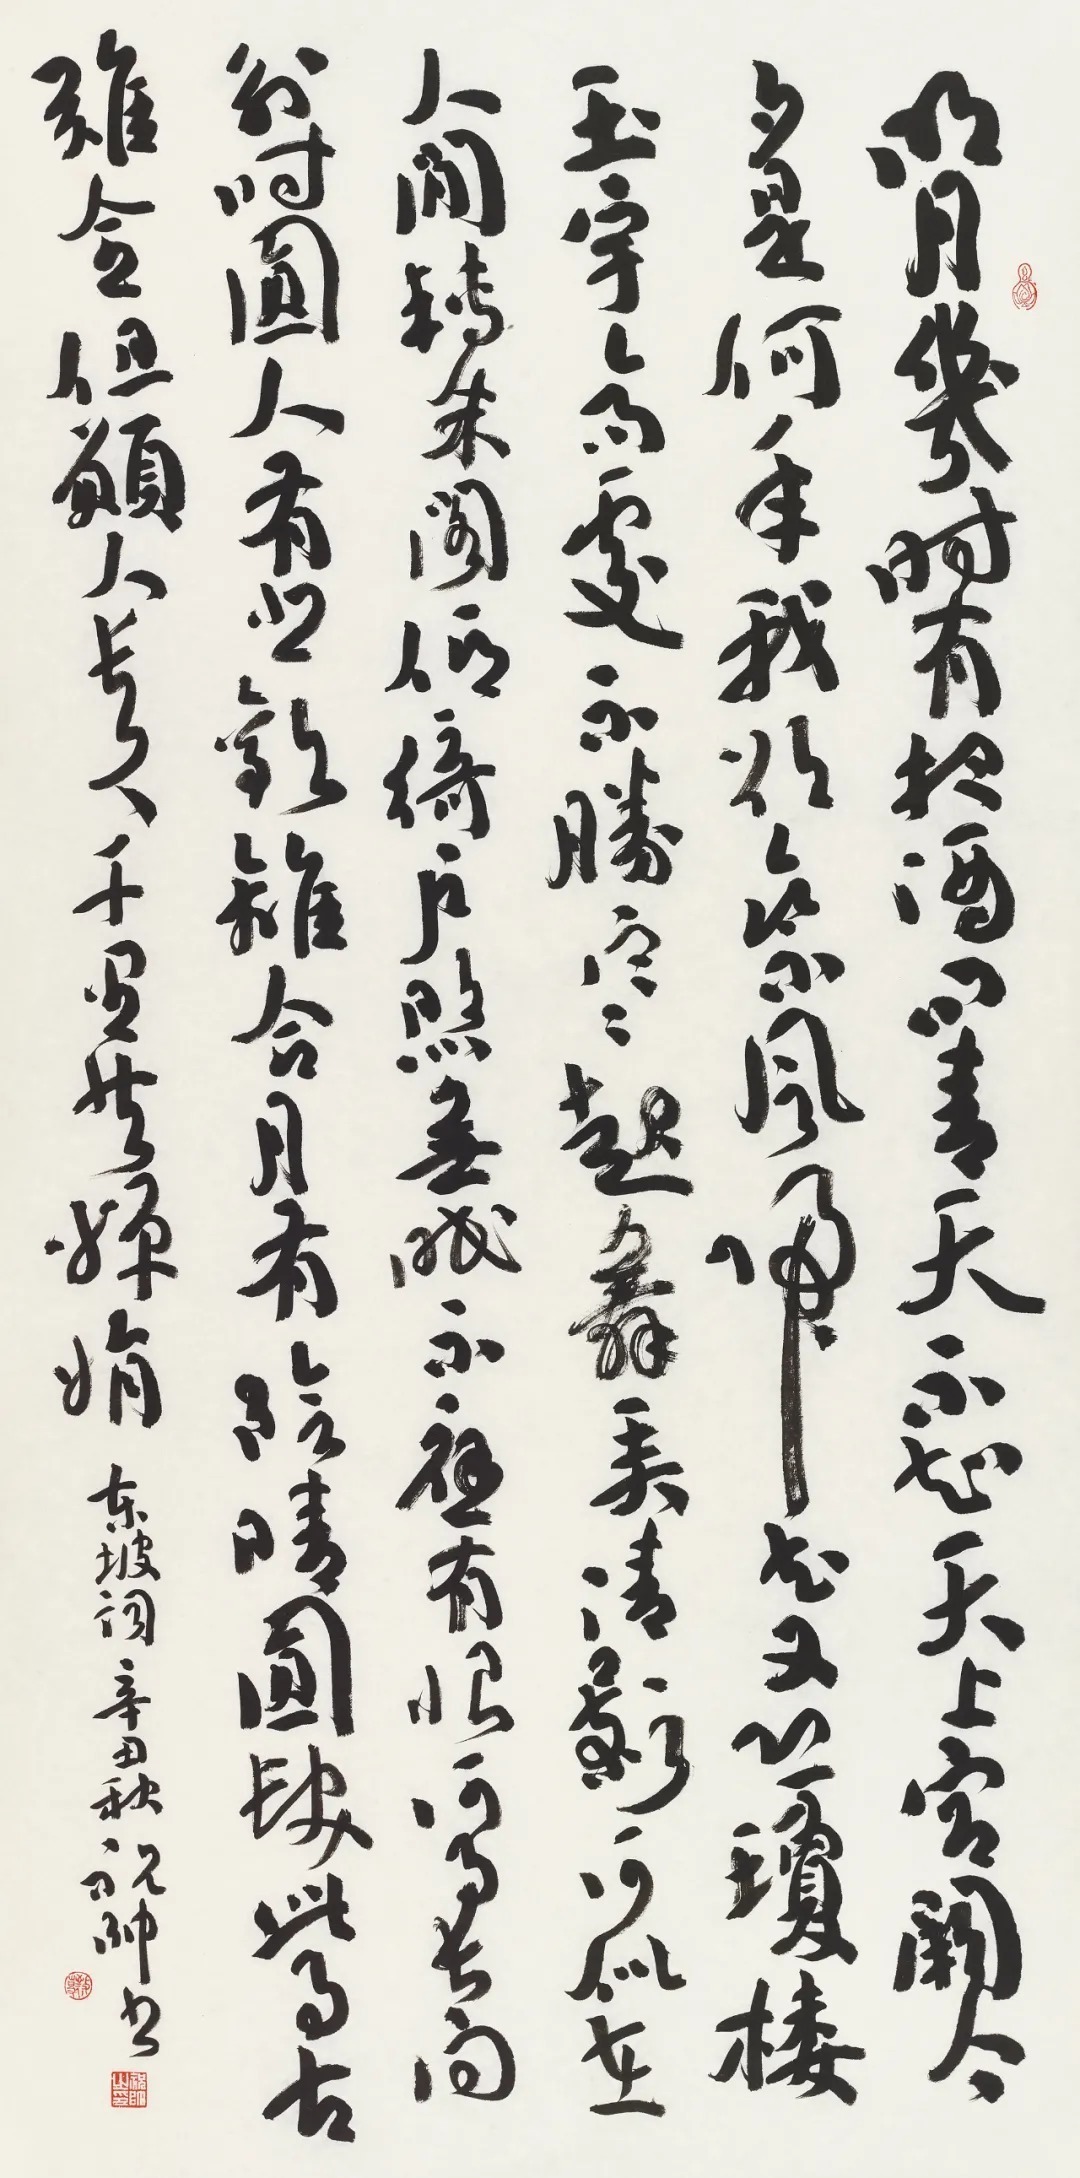 明月幾時有把酒問青天不知天上宮闕今
夕是何年我欲乘風歸去又恐瓊樓
玉宇高處不勝寒起舞弄清影何似在
人間轉朱閣低綺戶照無眠不應有恨何事長向
別時圓人有悲歡離合月有陰晴圓缺此事古
難全但願人長久千里共嬋娟 东坡词 辛丑秋 祝帅书